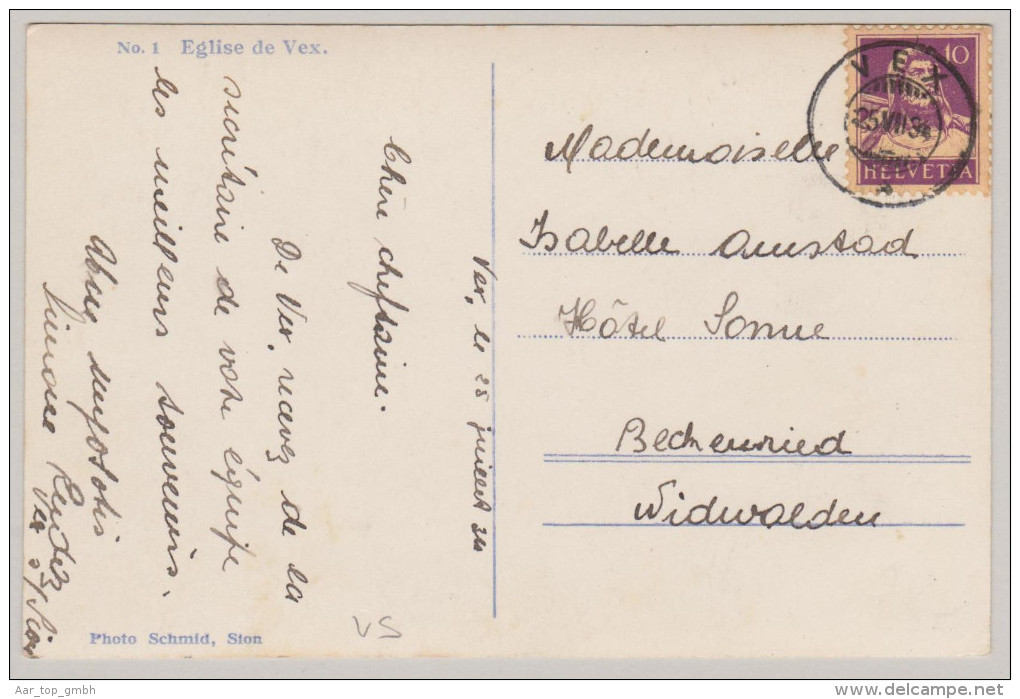 No. 1 Eglise de Vex.
Vex, le 25 juillet 34
Chère cheftaine.
De Vex, recevez de la
sicrétaire de votre équipe
les meilleurs souvenirs.
myosotis
Simone
Vex s/ Sion
Photo Schmid, Sion
VS
10
HELVETIA
VEX
25 VII 34
Mademoiselle
Isabelle Amstad
Hôtel Sonne
Beckenried
Nidwalden
Aar_top_gmbh
delcampe.net